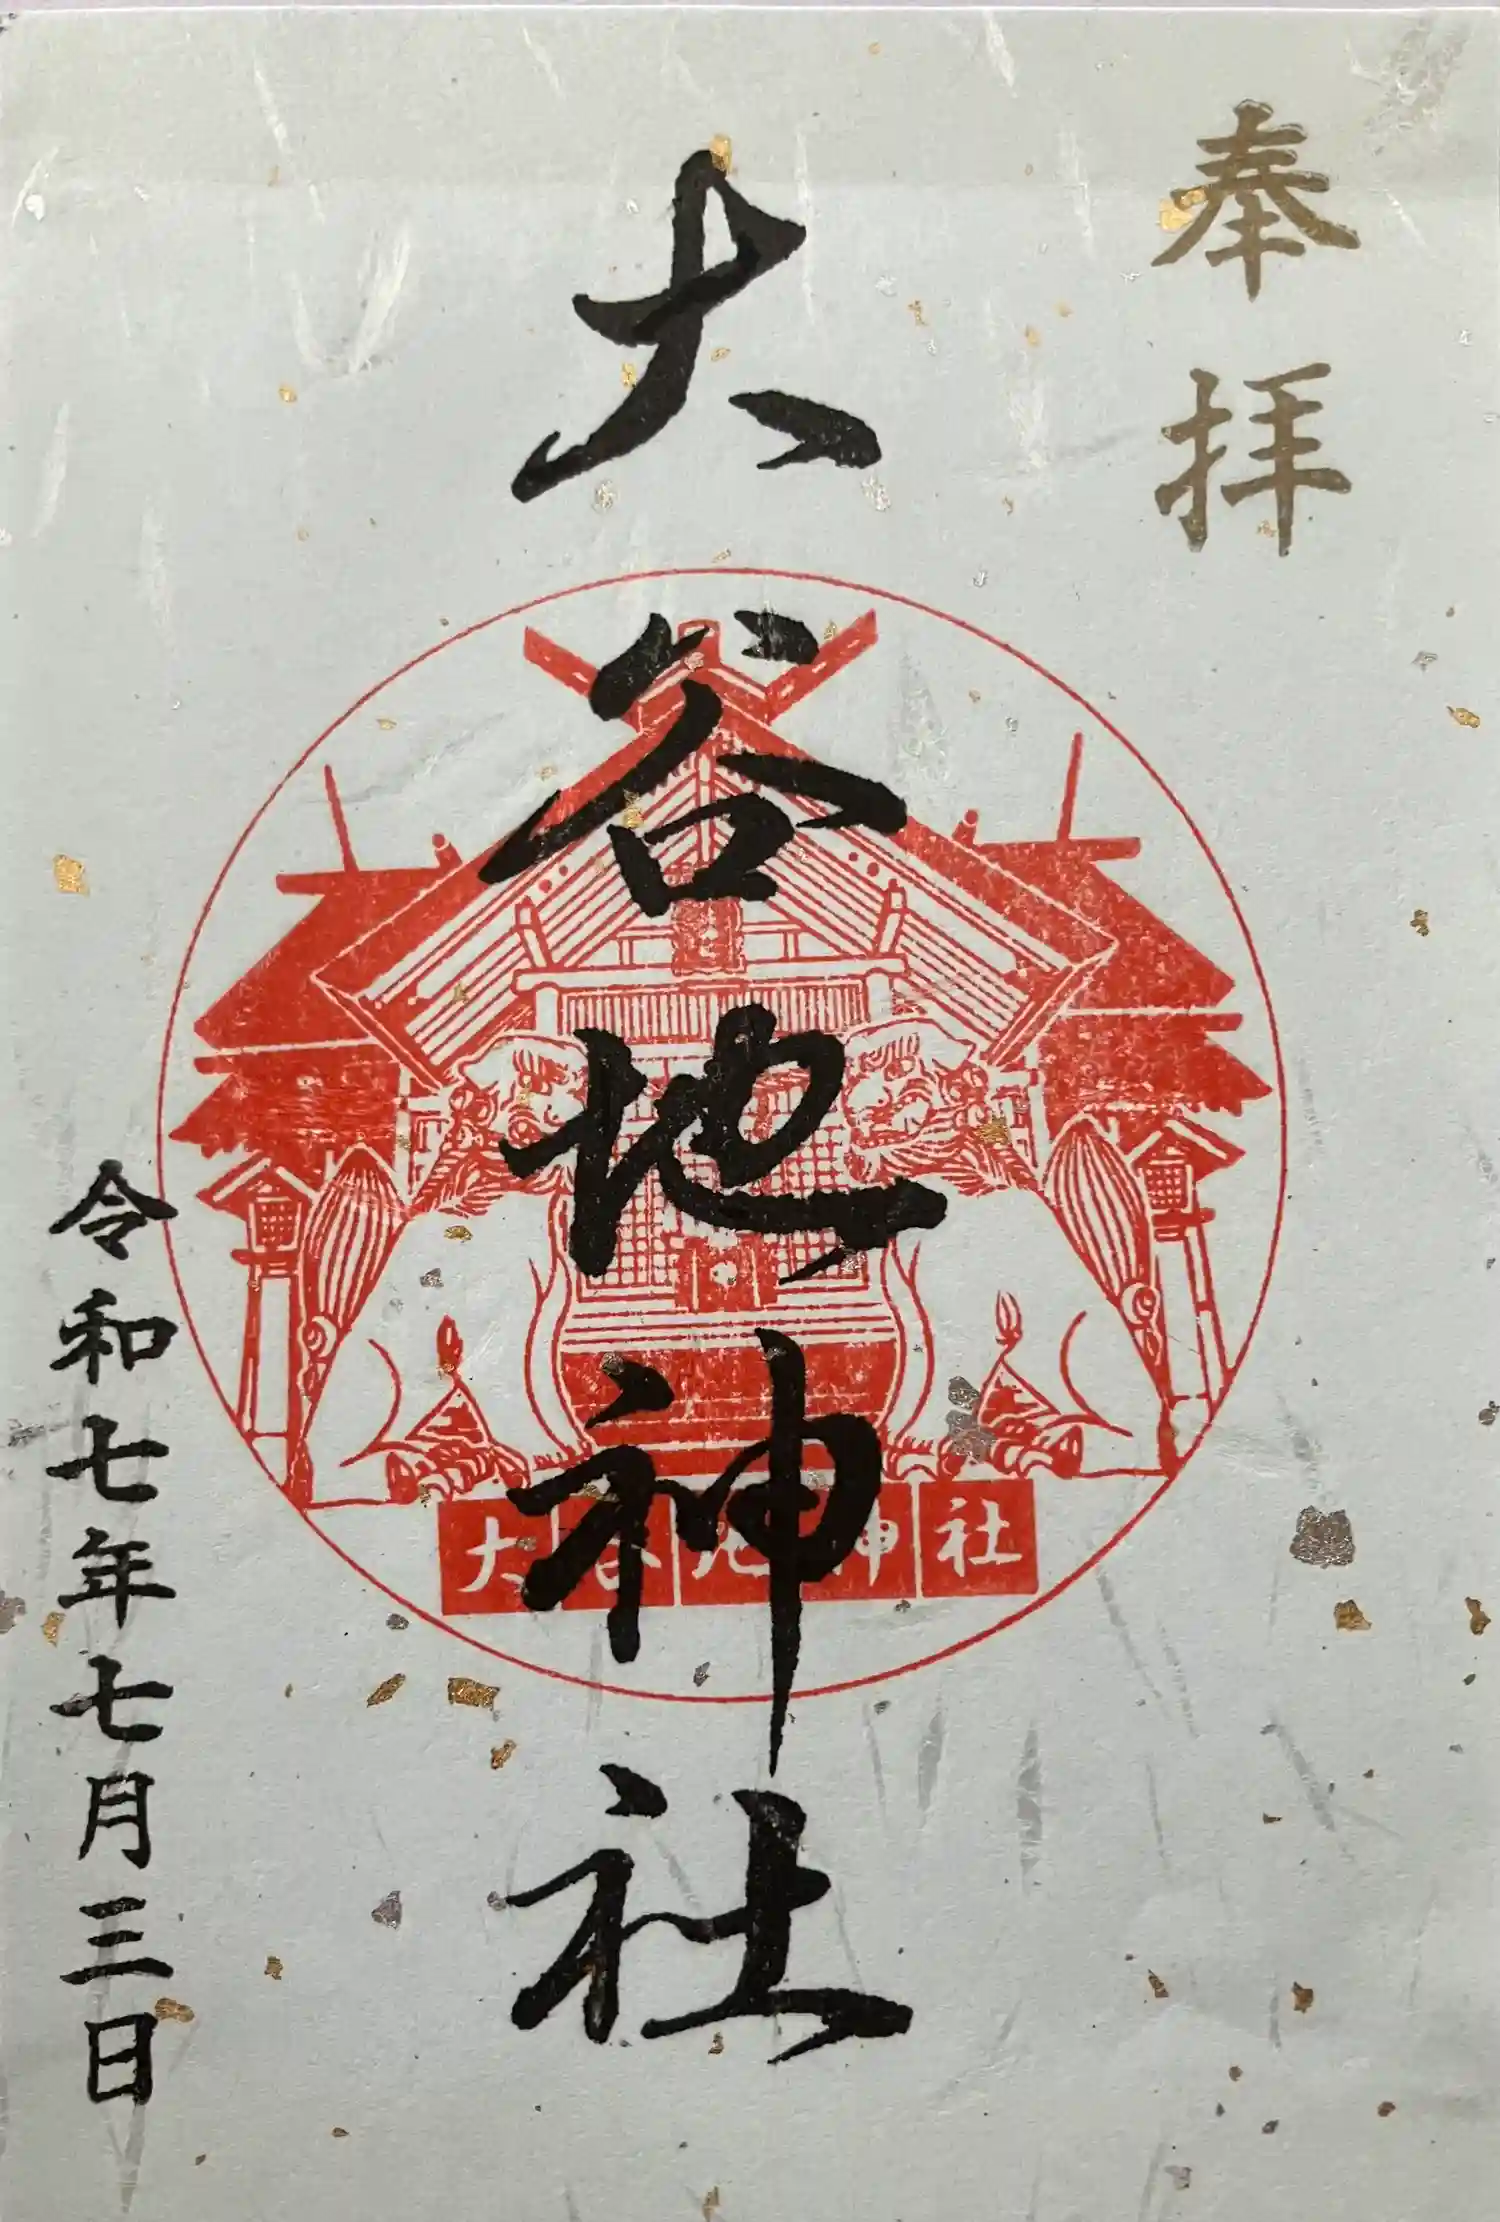 奉拝
大谷地神社
大谷地神社
令和七年七月三日